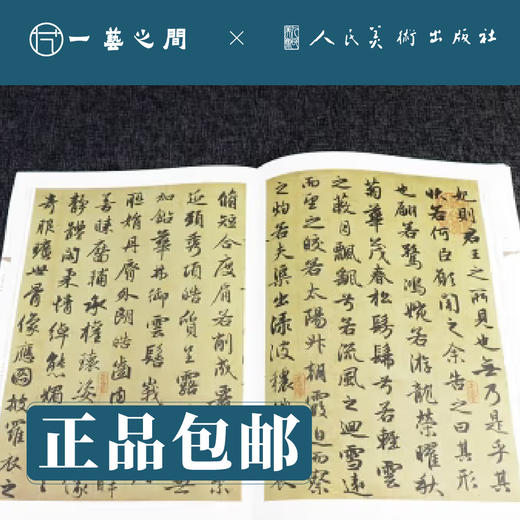 一藝之間 × 人民美術出版社
妃則君王之所見也無乃是乎其
狀若何臣願聞之余告之曰其形
也翩若驚鴻婉若游龍榮曜秋
菊華茂春松髣髴兮若輕雲
之蔽月飄颻兮若流風之迴雪遠
而望之皎若太陽升朝霞迫而察
之灼若夫渠出渌波穠
脩短合度肩若削成
延頸秀項皓質呈露 無
加鉛華弗御雲髻峩
娟丹脣外朗皓齒内
善睞靨輔承權瓌姿
静體閑柔情綽態媚
奇服曠世骨像應圖披羅衣之
正品包邮